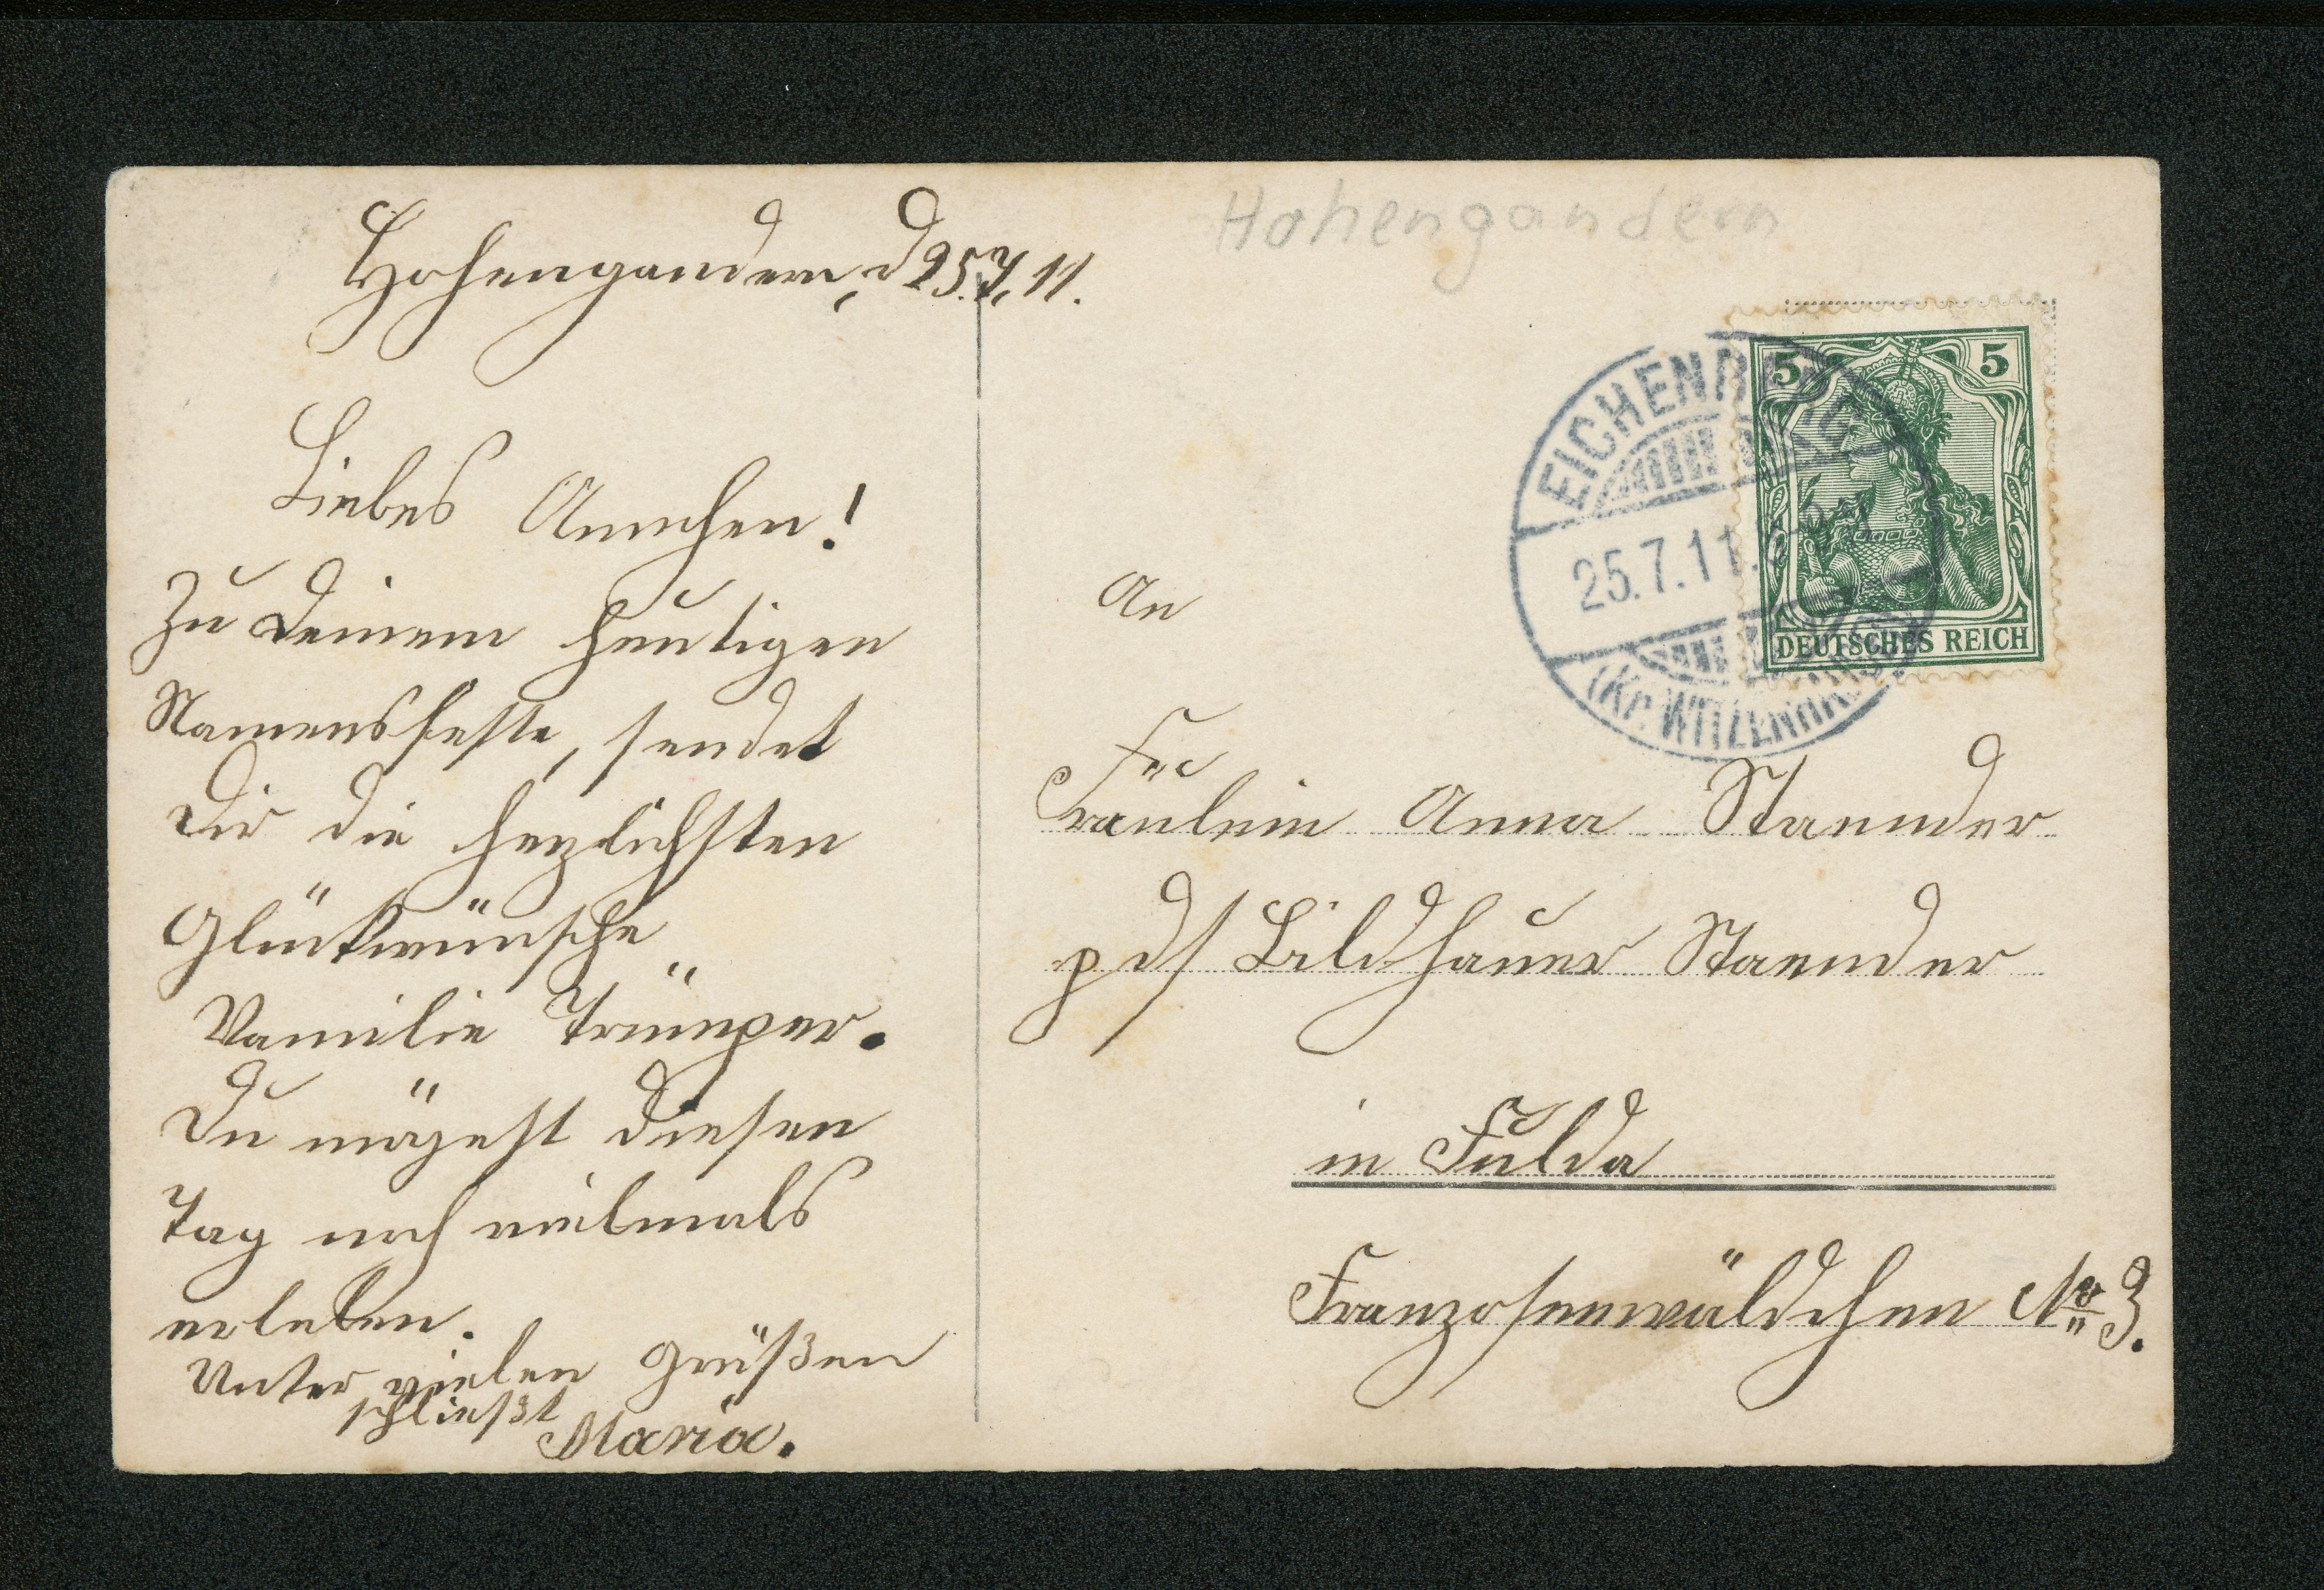 Hohengandern
Hohengandern, d 25.7.11.
Liebes Annchen!
Zu Deinem heutigen
Namensfeste, sendet
Dir die herzlichsten
Glückwünsche
Familie Trümper.
Du mögest diesen
Tag noch vielmals
erleben.
Unter vielen Grüßen
schließt
Maria.
EICHENBERG
25.7.11.
(Kr. WITZENHAUSEN)
5 5
DEUTSCHES REICH
An
Fräulein Anna Staender
p ds Bildhauer Staender
in Fulda
Franzosenwäldchen No 3.